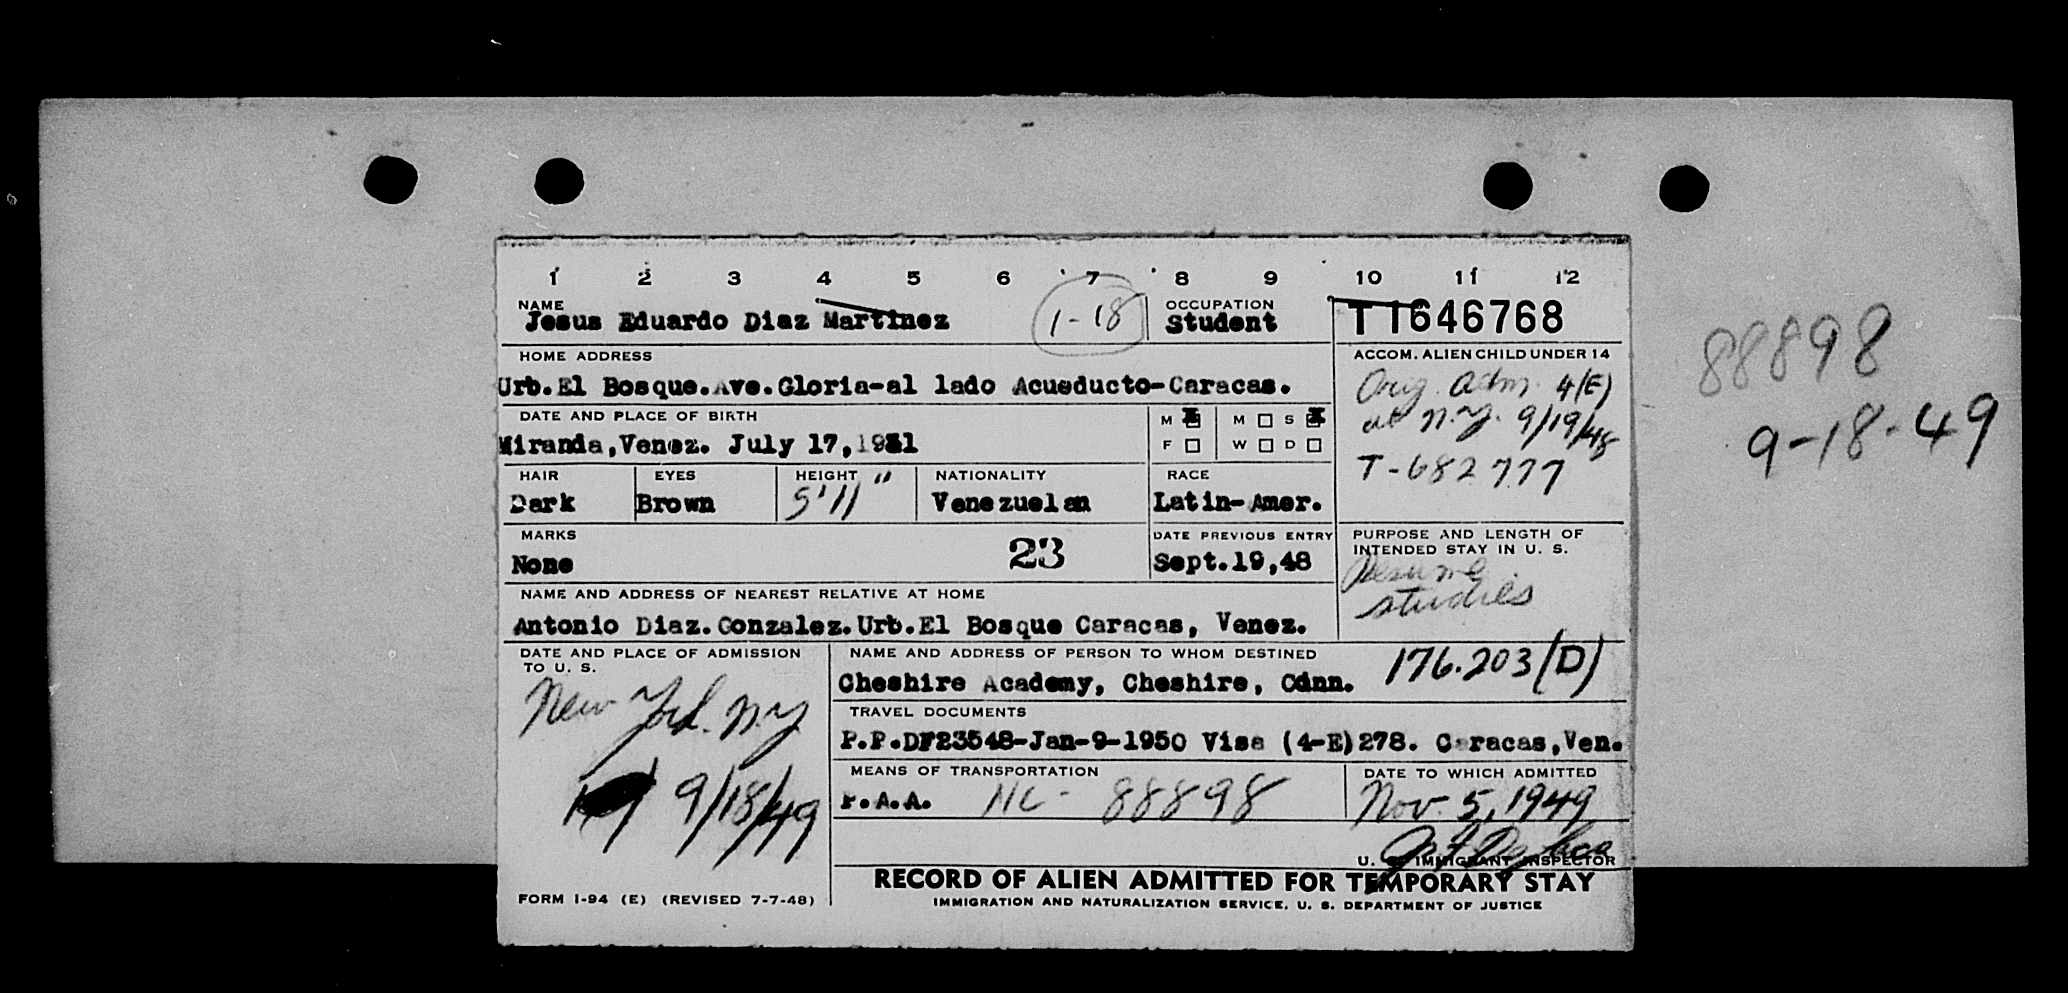 1 2 3 4 5 6 7 8 9 10 11 12
NAME
Jesus Eduardo Diaz Martinez
1-18
OCCUPATION
Student
T1646768
HOME ADDRESS
Urb.El Bosque.Ave.Gloria-al lado Acueducto-Caracas.
ACCOM. ALIEN CHILD UNDER 14
Orig. Adm. 4(E)
at N.Y. 9/19/48
T-682777
88898
9-18-49
DATE AND PLACE OF BIRTH
Miranda,Venez. July 17,1931
M M S
F W D
HAIR
Dark
EYES
Brown
HEIGHT
5'11"
NATIONALITY
Venezuelan
RACE
Latin-Amer.
MARKS
None
23
DATE PREVIOUS ENTRY
Sept.19,48
PURPOSE AND LENGTH OF
INTENDED STAY IN U. S.
Resume
studies
NAME AND ADDRESS OF NEAREST RELATIVE AT HOME
Antonio Diaz.Gonzalez.Urb.El Bosque Caracas, Venez.
DATE AND PLACE OF ADMISSION
TO U. S.
New York. N.Y
9/18/49
NAME AND ADDRESS OF PERSON TO WHOM DESTINED
Cheshire Academy, Cheshire, Cônn.
176.203(D)
TRAVEL DOCUMENTS
P.P.DF23548-Jan-9-1950 Visa (4-E)278. Caracas,Ven.
MEANS OF TRANSPORTATION
P.A.A. NC- 88898
DATE TO WHICH ADMITTED
Nov. 5, 1949
U. S. IMMIGRANT INSPECTOR
RECORD OF ALIEN ADMITTED FOR TEMPORARY STAY
FORM I-94 (E) (REVISED 7-7-48)
IMMIGRATION AND NATURALIZATION SERVICE, U. S. DEPARTMENT OF JUSTICE